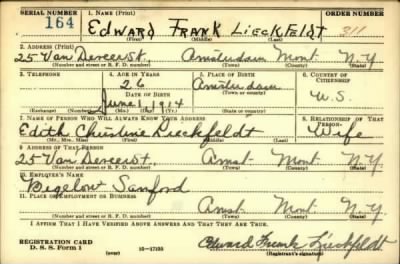 SERIAL NUMBER 1. NAME (Print) ORDER NUMBER
164 EDWARD FRANK LIECKFELDT 311
(First) (Middle) (Last)
2. ADDRESS (Print)
25 Van Derveer St. Amsterdam Mont. N.Y.
(Number and street or R. F. D. number) (Town) (County) (State)
3. TELEPHONE 4. AGE IN YEARS 5. PLACE OF BIRTH 6. COUNTRY OF CITIZENSHIP
26 Amsterdam
DATE OF BIRTH (Town or county)
June 1, 1914 N.Y. U.S.
(Exchange) (Number) (Mo.) (Day) (Yr.) (State or country)
7. NAME OF PERSON WHO WILL ALWAYS KNOW YOUR ADDRESS 8. RELATIONSHIP OF THAT PERSON
Edith Christine Lieckfeldt Wife
(Mr., Mrs., Miss) (First) (Middle) (Last)
9. ADDRESS OF THAT PERSON
25 Van Derveer St. Amst. Mont. N.Y.
(Number and street or R. F. D. number) (Town) (County) (State)
10. EMPLOYER'S NAME
Bigelow Sanford
11. PLACE OF EMPLOYMENT OR BUSINESS
Amst. Mont. N.Y.
(Number and street or R. F. D. number) (Town) (County) (State)
I AFFIRM THAT I HAVE VERIFIED ABOVE ANSWERS AND THAT THEY ARE TRUE.
REGISTRATION CARD
D. S. S. Form 1 (over) 16—17105 Edward Frank Lieckfeldt
(Registrant's signature)